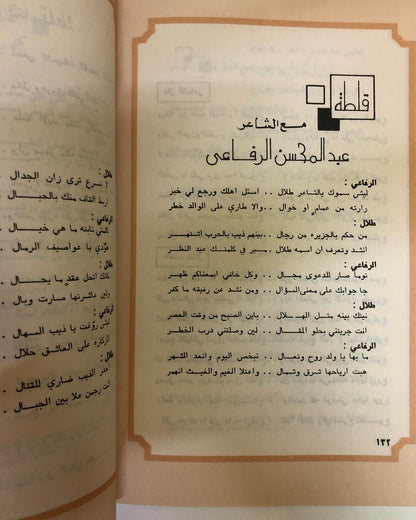 قلطة
مع الشاعر
عبد المحسن الرفاعي
الرفاعي :
ليش سموك يالشاعر طلال .. اسئل اهلك ورجع لي خبر
وارثه من عمامٍ او خوال .. والا طاري على الوالد خطر
طلال :
من حكم بالجزيره من رجال .. بينهم ذيب بالحرب اشتهر
انشد وتعرف ان اسمه طلال .. سر في كلمتك عبد النظر
الرفاعي :
نوما صار للدعوى مجال .. وكل خافي ابمعناكم ظهر
جا جوابك على معنى السؤال .. ومن نشد عن رفيقه ما كفر
طلال :
نيتك بينه مثل الهلال .. بان الصبح من وقت العصر
انت جربتني بحلو المقال .. لين وصلتني درب الخطر
الرفاعي :
ما بها يا ولد روح وتعال .. تبخص اليوم وانعد الشهر
هبت ارياحها شرق وشمال .. واعتلا الغيم والغيث انهمر
١٣٢
طلال :
لا تسرع ترى زان الجدال .
اربط القاف منك بالحبال .
الرفاعي :
ما هي خيال .
يا عواصيف الرمال .
طلال :
انحل عقد
صارت وبال .
الرفاعي :
يا ذيب السهال .
على العاشق حلال .
طلال :
احذر الذيب ضاري للقتال .
انت رجمن علا بين الجبال .